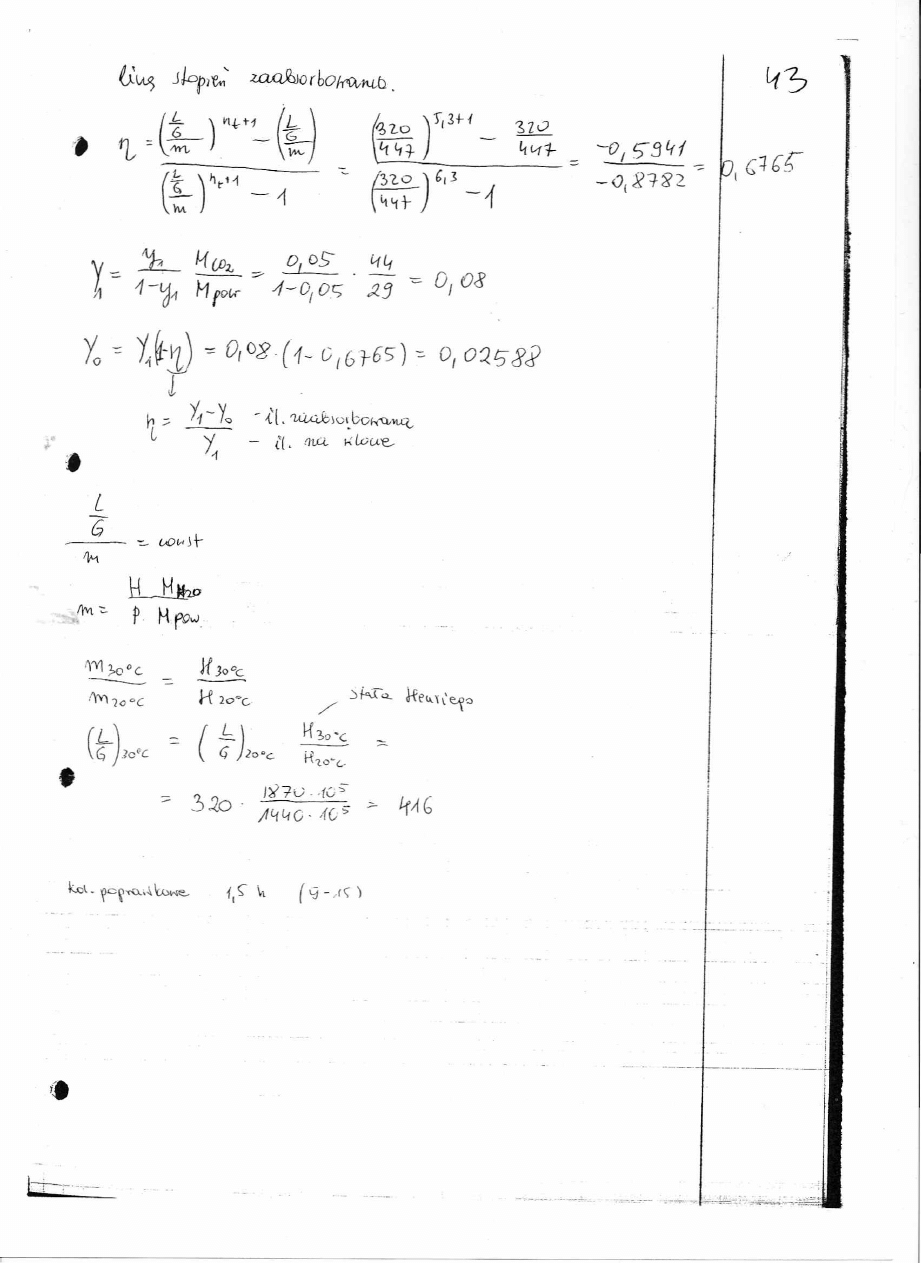 43
liczę stopień zaabsorbowania.
η = ((L/G)/m)^(n_t+1) − ((L/G)/m) / ((L/G)/m)^(n_t+1) − 1 = (320/447)^(5,3+1) − 320/447 / (320/447)^(6,3) − 1 = −0,5941 / −0,8782 = 0,6765
Y₁ = y₁/(1−y₁) M_CO2/M_pow = 0,05/(1−0,05) · 44/29 = 0,08
Y₀ = Y₁(1−η) = 0,08·(1−0,6765) = 0,02588
↓
η = (Y₁−Y₀)/Y₁ − il. zaabsorbowana
− il. na wlocie
(L/G)/m = const
m = H M_H2O / P M_pow
m_30°C / m_20°C = H_30°C / H_20°C
stała Henriego
(L/G)_30°C = (L/G)_20°C H_30°C/H_20°C =
= 320 · 1870·10⁵ / 1440·10⁵ = 416
kol. poprawkowe 1,5 h (9-15)